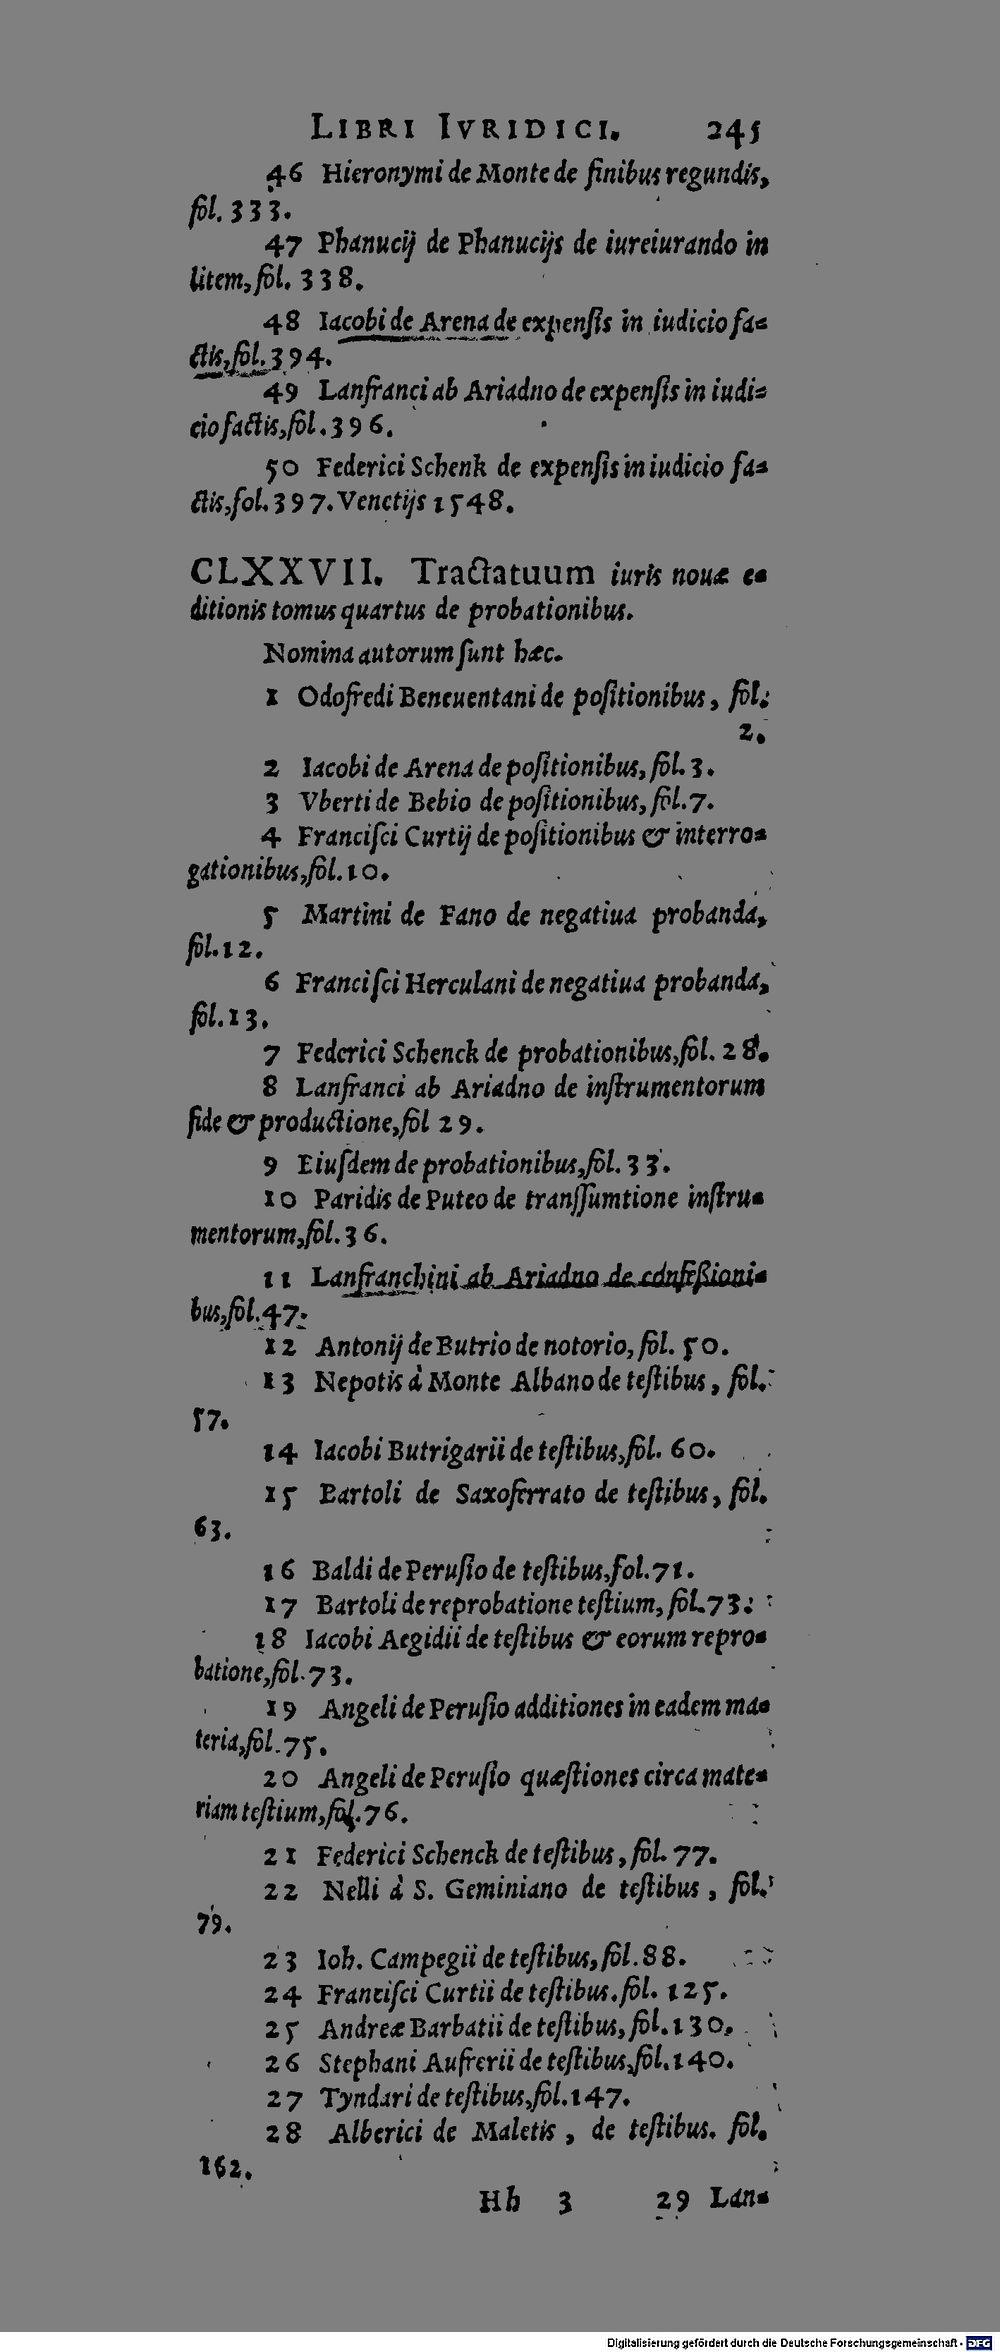 LIBRI IVRIDICI. 245
46 Hieronymi de Monte de finibus regundis,
fol. 333.
47 Phanucij de Phanucijs de iureiurando in
litem, fol. 338.
48 Iacobi de Arena de expenſis in iudicio fa=
ctis, fol. 394.
49 Lanfranci ab Ariadno de expenſis in iudi=
cio factis, fol. 396.
50 Federici Schenk de expenſis in iudicio fa=
ctis, fol. 397. Venetijs 1548.
CLXXVII. Tractatuum iuris nouæ e=
ditionis tomus quartus de probationibus.
Nomina autorum ſunt hæc.
1 Odofredi Beneuentani de poſitionibus, fol.
2.
2 Iacobi de Arena de poſitionibus, fol. 3.
3 Vberti de Bebio de poſitionibus, fol. 7.
4 Franciſci Curtij de poſitionibus & interro=
gationibus, fol. 10.
5 Martini de Fano de negatiua probanda,
fol. 12.
6 Franciſci Herculani de negatiua probanda,
fol. 13.
7 Federici Schenck de probationibus, fol. 28.
8 Lanfranci ab Ariadno de inſtrumentorum
fide & productione, fol 29.
9 Eiuſdem de probationibus, fol. 33.
10 Paridis de Puteo de tranſſumtione inſtru=
mentorum, fol. 36.
11 Lanfranchini ab Ariadno de confeßioni=
bus, fol. 47.
12 Antonij de Butrio de notorio, fol. 50.
13 Nepotis à Monte Albano de teſtibus, fol.
57.
14 Iacobi Butrigarii de teſtibus, fol. 60.
15 Bartoli de Saxoferrato de teſtibus, fol.
63.
16 Baldi de Peruſio de teſtibus, fol. 71.
17 Bartoli de reprobatione teſtium, fol. 73.
18 Iacobi Aegidii de teſtibus & eorum repro=
batione, fol. 73.
19 Angeli de Peruſio additiones in eadem ma=
teria, fol. 75.
20 Angeli de Peruſio quæſtiones circa mate=
riam teſtium, fol. 76.
21 Federici Schenck de teſtibus, fol. 77.
22 Nelli à S. Geminiano de teſtibus, fol.
79.
23 Ioh. Campegii de teſtibus, fol. 88.
24 Franciſci Curtii de teſtibus. fol. 125.
25 Andreæ Barbatii de teſtibus, fol. 130.
26 Stephani Aufrerii de teſtibus, fol. 140.
27 Tyndari de teſtibus, fol. 147.
28 Alberici de Maletis, de teſtibus. fol.
162.
Hh 3 29 Lan=
Digitalisierung gefördert durch die Deutsche Forschungsgemeinschaft - DFG